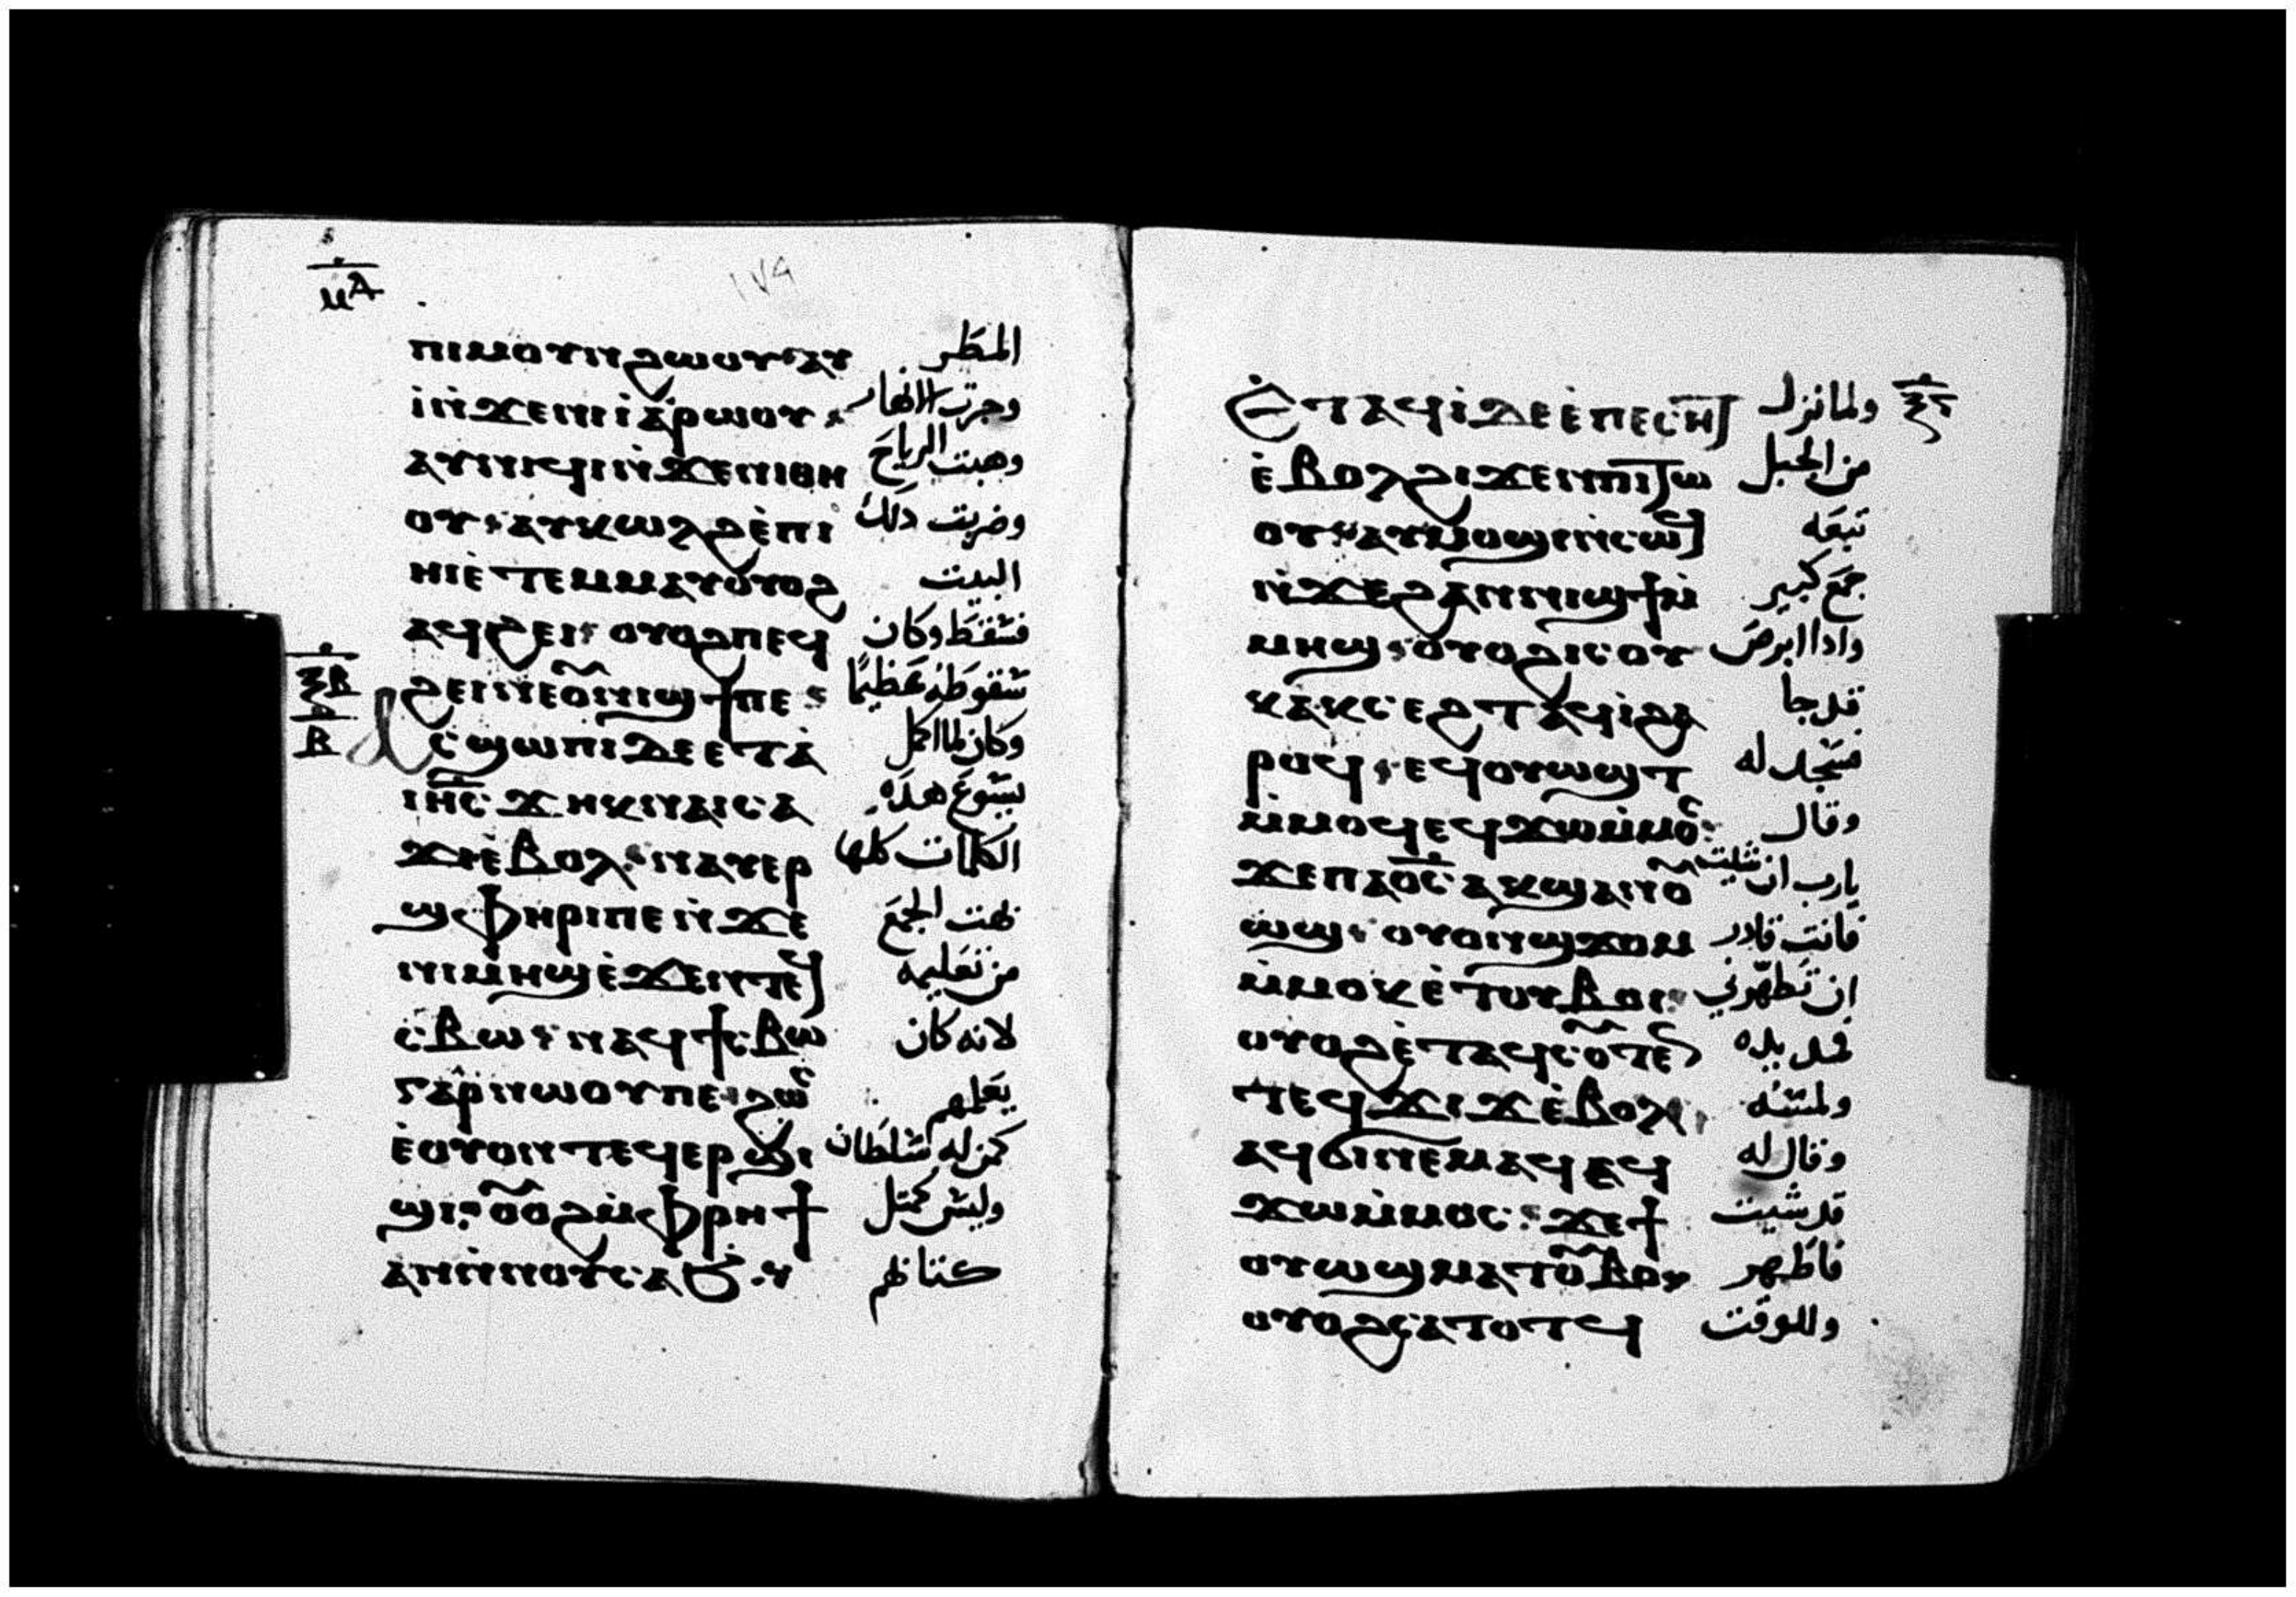 ⲙⲁ
١٧٩
ⲡⲓⲙⲟⲩⲛϩⲱⲟⲩ ⲁⲩ المطر
ⲓ̀ⲛ̀ϫⲉⲛⲓⲓⲁⲣⲱⲟⲩ وجرت الانهار
ⲁⲩⲛⲓϥⲓⲛ̀ϫⲉⲛⲓⲑⲏ وهبت الرياح
ⲟⲩ ⲁⲩⲕⲱⲗϩ ⲉ̀ⲡⲓ وضربت دلك
ⲏⲓ ⲉ̀ⲧⲉⲙⲙⲁⲩ ⲟⲩⲟϩ البيت
ⲁϥϩⲉⲓ ⲟⲩⲟϩ ⲡⲉϥ فسقط وكان
ϩⲉⲓ ⲛⲉⲟ̅ⲛⲓϣϯⲡⲉ سقوطه عظيمًا
ⲝⲃ
ⲃ
ⲁⲥϣⲱⲡⲓ ⲇⲉ ⲉⲧⲁ وكان لما اكمل
ⲓⲏ̅ⲥ ϫⲏⲕ ⲛⲁⲓⲥⲁ يسوع هده
ϫⲓ ⲉ̀ⲃⲟⲗ ⲛⲁⲩⲉⲣ الكلمات كلها
ϣⲫⲏⲣⲓ ⲡⲉ ⲛ̀ϫⲉ بهت الجمع
ⲛⲓⲙⲏϣ ⲉ̀ϫⲉⲛ ⲧⲉϥ من تعليمه
ⲥⲃⲱ ⲛⲁϥϯⲥⲃⲱ لانه كان
ⲅⲁⲣ ⲛⲱⲟⲩ ⲡⲉ ϩⲱⲥ يعلمهم
ⲉ̀ⲟⲩⲟⲛⲧⲉϥⲉⲣϣⲓ كمن له سلطان
ϣⲓ ⲟ̅ⲟϩ ⲙ̀ⲫⲣⲏϯ وليس كمثل
ⲁⲛ ⲛ̀ⲛⲟⲩⲥⲁϧ كتابهم
ⲉ̀ⲧⲁϥⲓ̀ ⲇⲉ ⲉ̀ⲡⲉⲥⲏⲧ ولما نزل
ⲉ̀ⲃⲟⲗϩⲓϫⲉⲛ ⲡⲓⲧⲱ من الجبل
ⲟⲩ ⲁⲩⲙⲟϣⲓ ⲛ̀ⲥⲱϥ تبعه
ⲛ̀ϫⲉϩⲁⲛⲛⲓϣϯ ⲙ̀ جمع كبير
ⲙⲏϣ ⲟⲩⲟϩ ⲓⲥ ⲟⲩ وادا ابرص
ⲕⲁⲕⲥⲉϩⲧ ⲁϥⲓ̀ ϩⲁ قد جا
ⲣⲟϥ ⲉϥⲟⲩⲱϣⲧ فسجد له
ⲙ̀ⲙⲟϥ ⲉϥϫⲱ ⲙ̀ⲙⲟⲥ وقال
ϫⲉ ⲡⲁⲟ̅ⲥ ⲁⲕϣⲁⲛⲟ̅ يارب ان شيت
ⲱϣ ⲟⲩⲟⲛϣϫⲟⲙ فانت قادر
ⲙ̀ⲙⲟⲕ ⲉ̀ⲧⲟⲩⲃⲟⲓ ان تطهرني
ⲟⲩⲟϩ ⲉ̀ⲧⲁϥⲥⲟⲩⲧⲉⲛ فمد يده
ⲧⲉϥϫⲓϫ ⲉ̀ⲃⲟⲗ ولمسه
ⲁϥϭⲓ ⲛⲉⲙⲁϥ ⲉϥ وقال له
ϫⲱ ⲙ̀ⲙⲟⲥ ϫⲉ ϯ قد شيت
ⲟⲩⲱϣ ⲙⲁⲧⲟ̅ⲃⲟ فاطهر
ⲟⲩⲟϩ ⲥⲁⲧⲟⲧϥ وللوقت